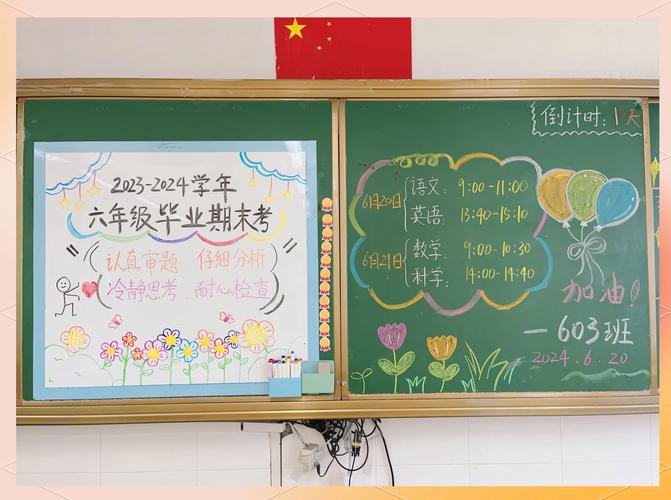 2023-2024学年
六年级毕业期末考
认真审题 仔细分析
冷静思考 耐心检查
倒计时:1天
6月20日
语文: 9:00-11:00
英语: 13:40-15:10
6月21日
数学: 9:00-10:30
科学: 14:00-14:40
加油!
—603班
2024.6.20